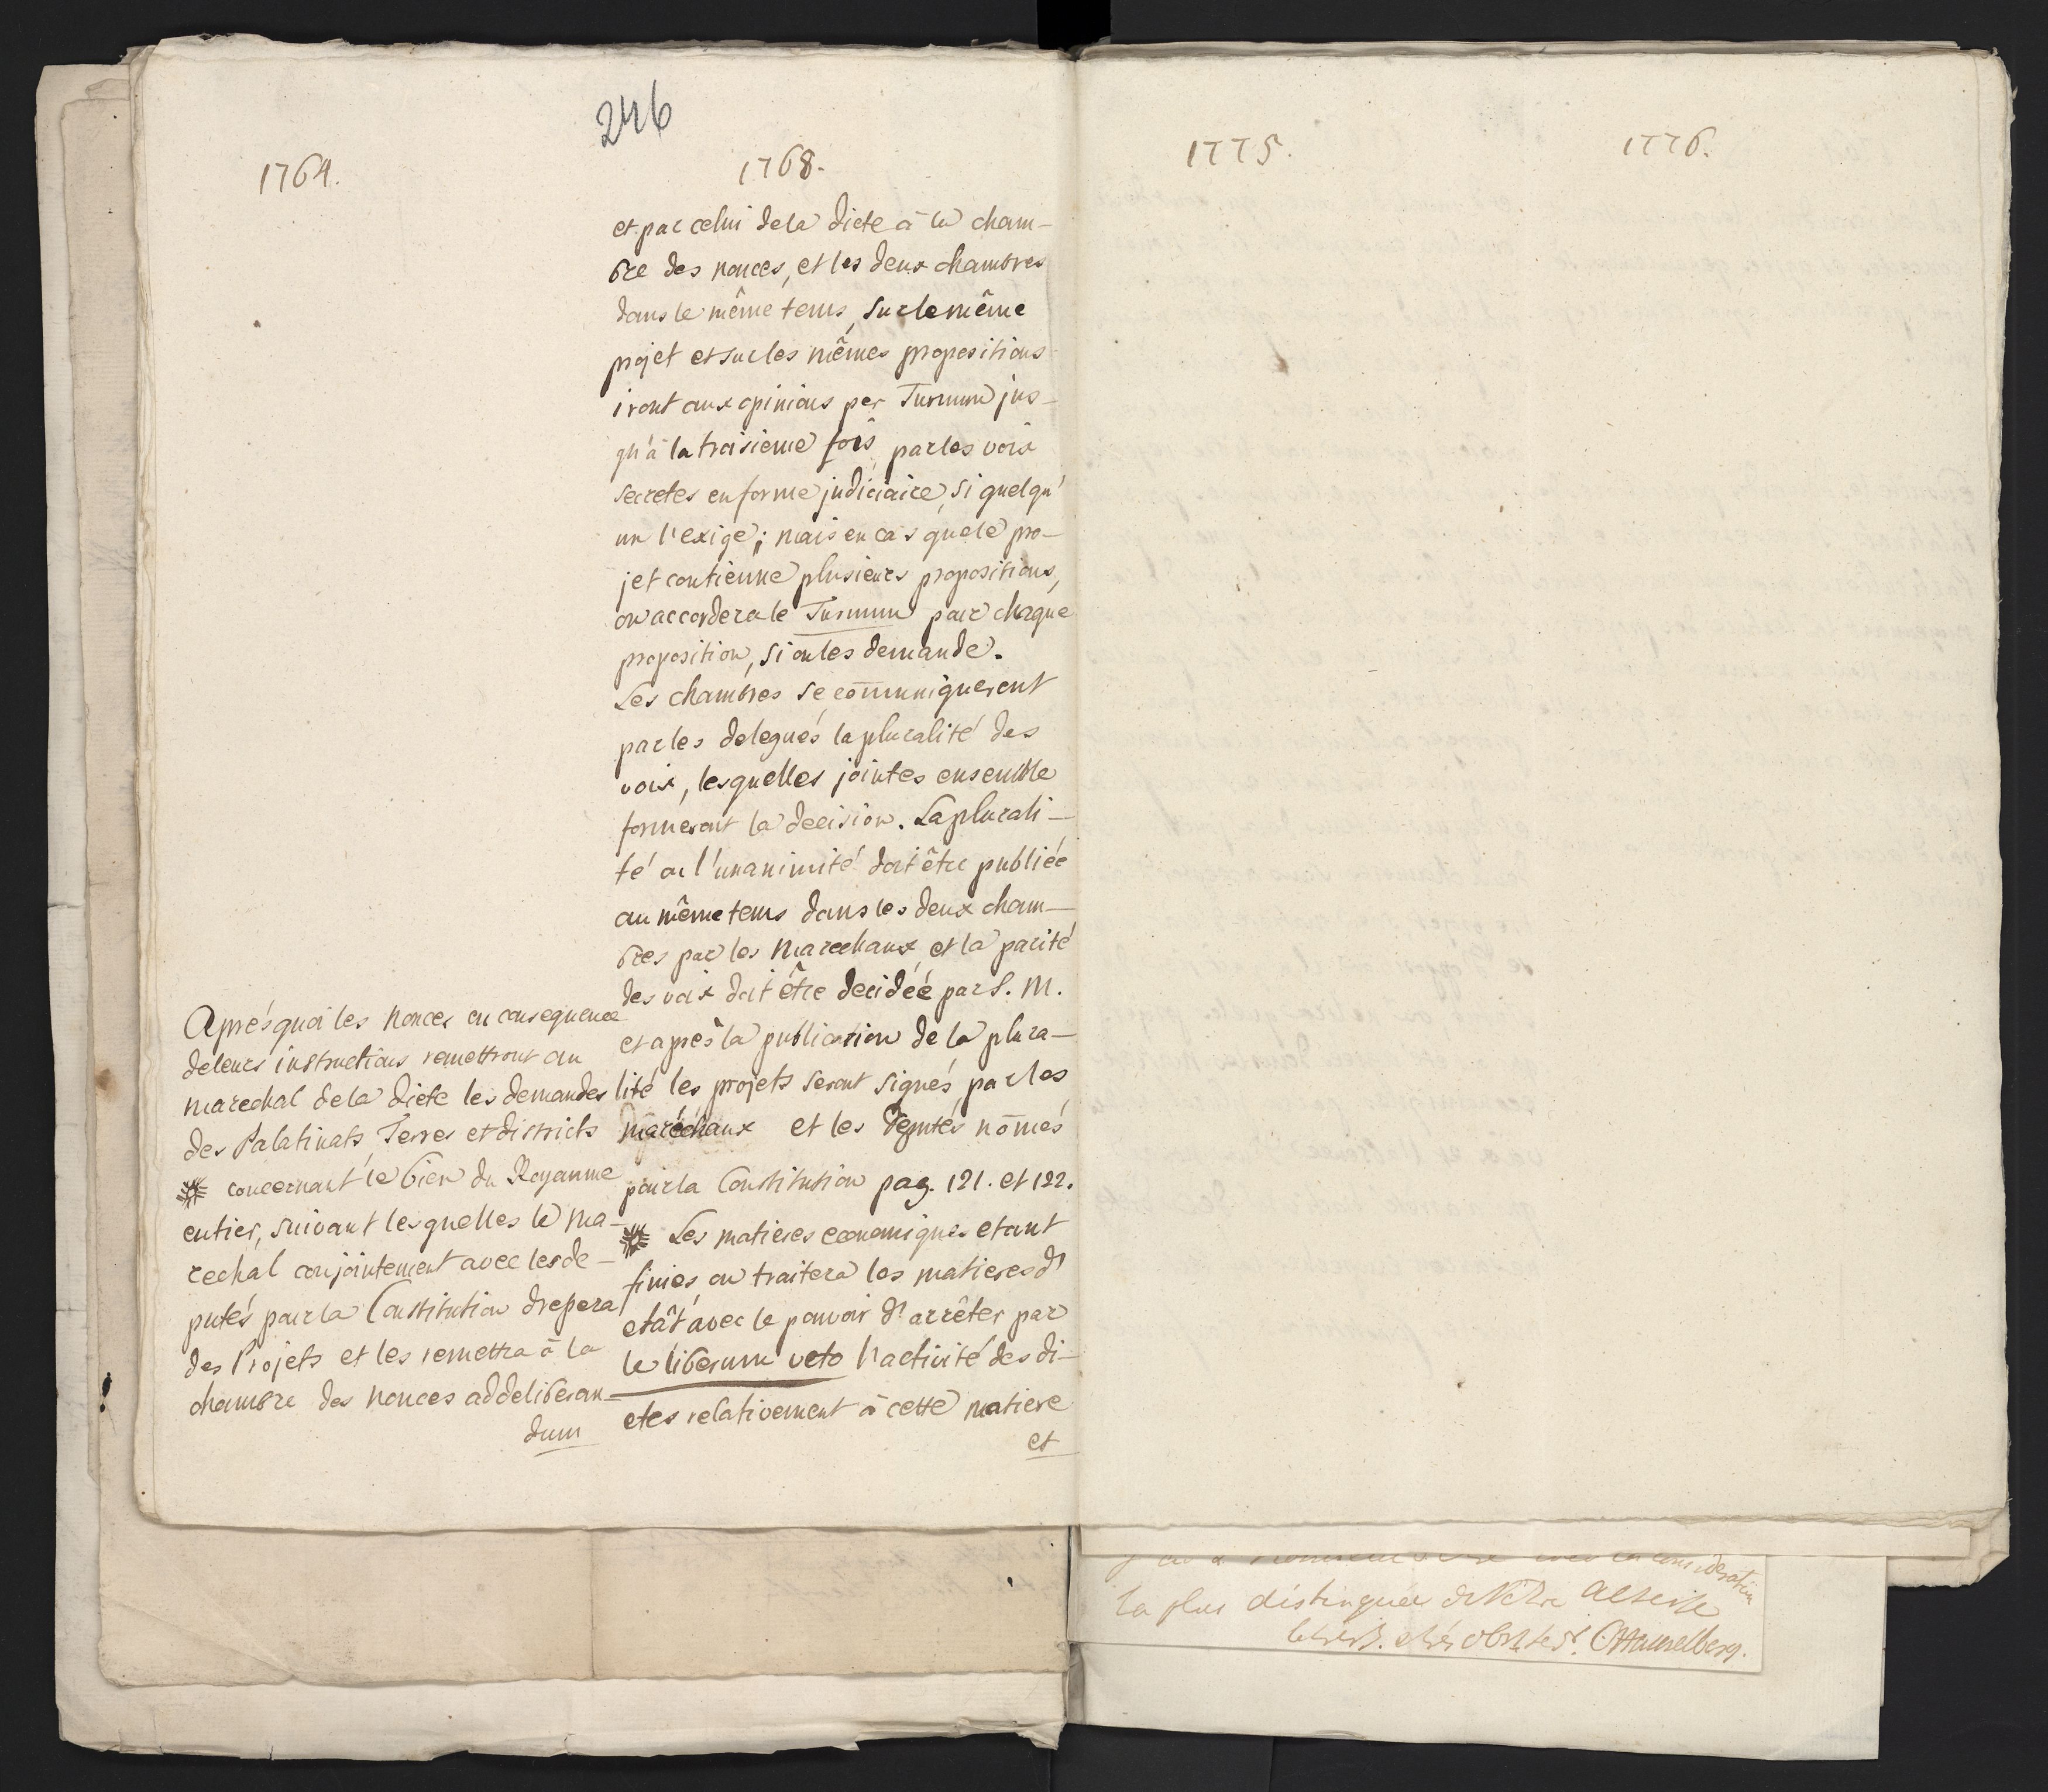 246
1764.
Aprés quoi les nonces en consequence
de leurs instructions remettront au
marechal de la diete les demandes
des Palatinats Terres et districts
concernant le bien du Royaume
entier, suivant lesquelles le ma-
rechal conjointement avec les de-
putés pour la Constitution drepera
des Projets et les remettra à la
chambre des nonces ad deliberan-
dum
1768.
et par celui de la diete à la cham-
bre des nonces, et les deux chambres
dans le même tems, sur le même
projet et sur les mêmes propositions
iront aux opinions per Turnum jus-
qu'à la troisieme fois, par les voix
secretes en forme judiciaire, si quelqu'
un l'exige; mais en cas que le pro-
jet contienne plusieurs propositions,
on accordera le Turnum pour chaque
proposition, si on les demande.
Les chambres se com̄uniqueront
par les delegués la pluralité des
voix, lesquelles jointes ensemble
formeront la decision. La plurali-
té ou l'unanimité doit être publiée
au même tems dans les deux cham-
bres par les marechaux, et la parité
des voix doit être decidée par S. M.
et après la publication de la plura-
lité les projets seront signés, par les
maréchaux et les deputés nom̄és
pour la Constitution pag. 121. et 122.
Les matieres economiques etant
finies, on traitera les matieres d'
etât avec le pouvoir d'arrêter par
le liberum veto l'activité des di-
etes relativement à cette matiere
et
1775.
1776.
consideration
la plus distinguée de Votre Altesse